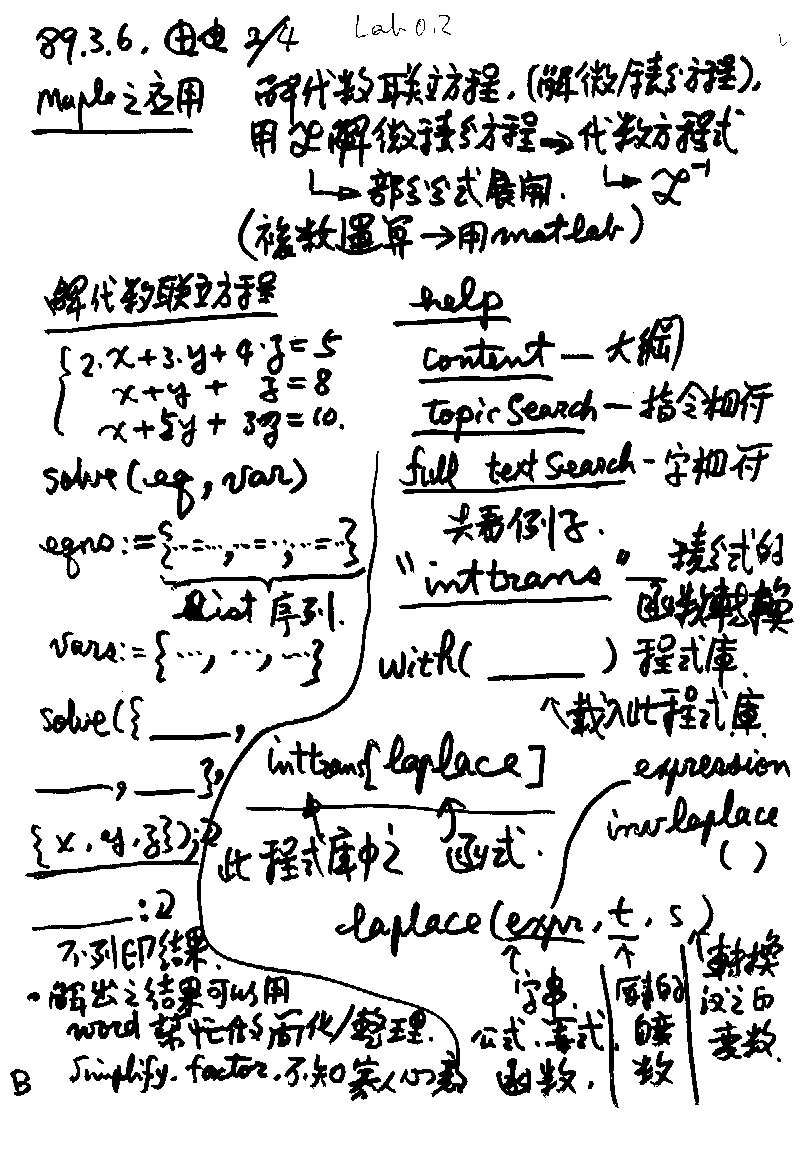 Lab 0.2
89.3.6. 田电 2/4
Maple之应用
解代数联立方程, (解微/積分方程),
用ℒ解微積分方程→代数方程式
↳部分分式展開. ↳ℒ⁻¹
(複数運算→用matlab)
解代数联立方程
{2·x+3·y+4·z=5
x+y+ z=8
x+5y+3z=10.
solve(eq, var)
eqns:={...=..., ..=.., ..=..}
list 序列.
vars:={..., ..., ...}
solve({____,
____, ____},
{x, y, z});
____:
不列印结果.
•解出之结果可以用
word幫忙做简化/整理.
simplify. factor. 不知
B
help
content — 大綱
topic Search — 指令相符
full text Search - 字相符
例子.
"inttrans" — 積分式的
函数轉換
with( ____ ) 程式庫.
↖載入此程式庫.
inttrans[laplace]
此程式庫中之 函式.
expression
invlaplace
( )
laplace(expr, t, s)
字串.
公式、方式、
函数.
的
变
数
轉換
之
变数.